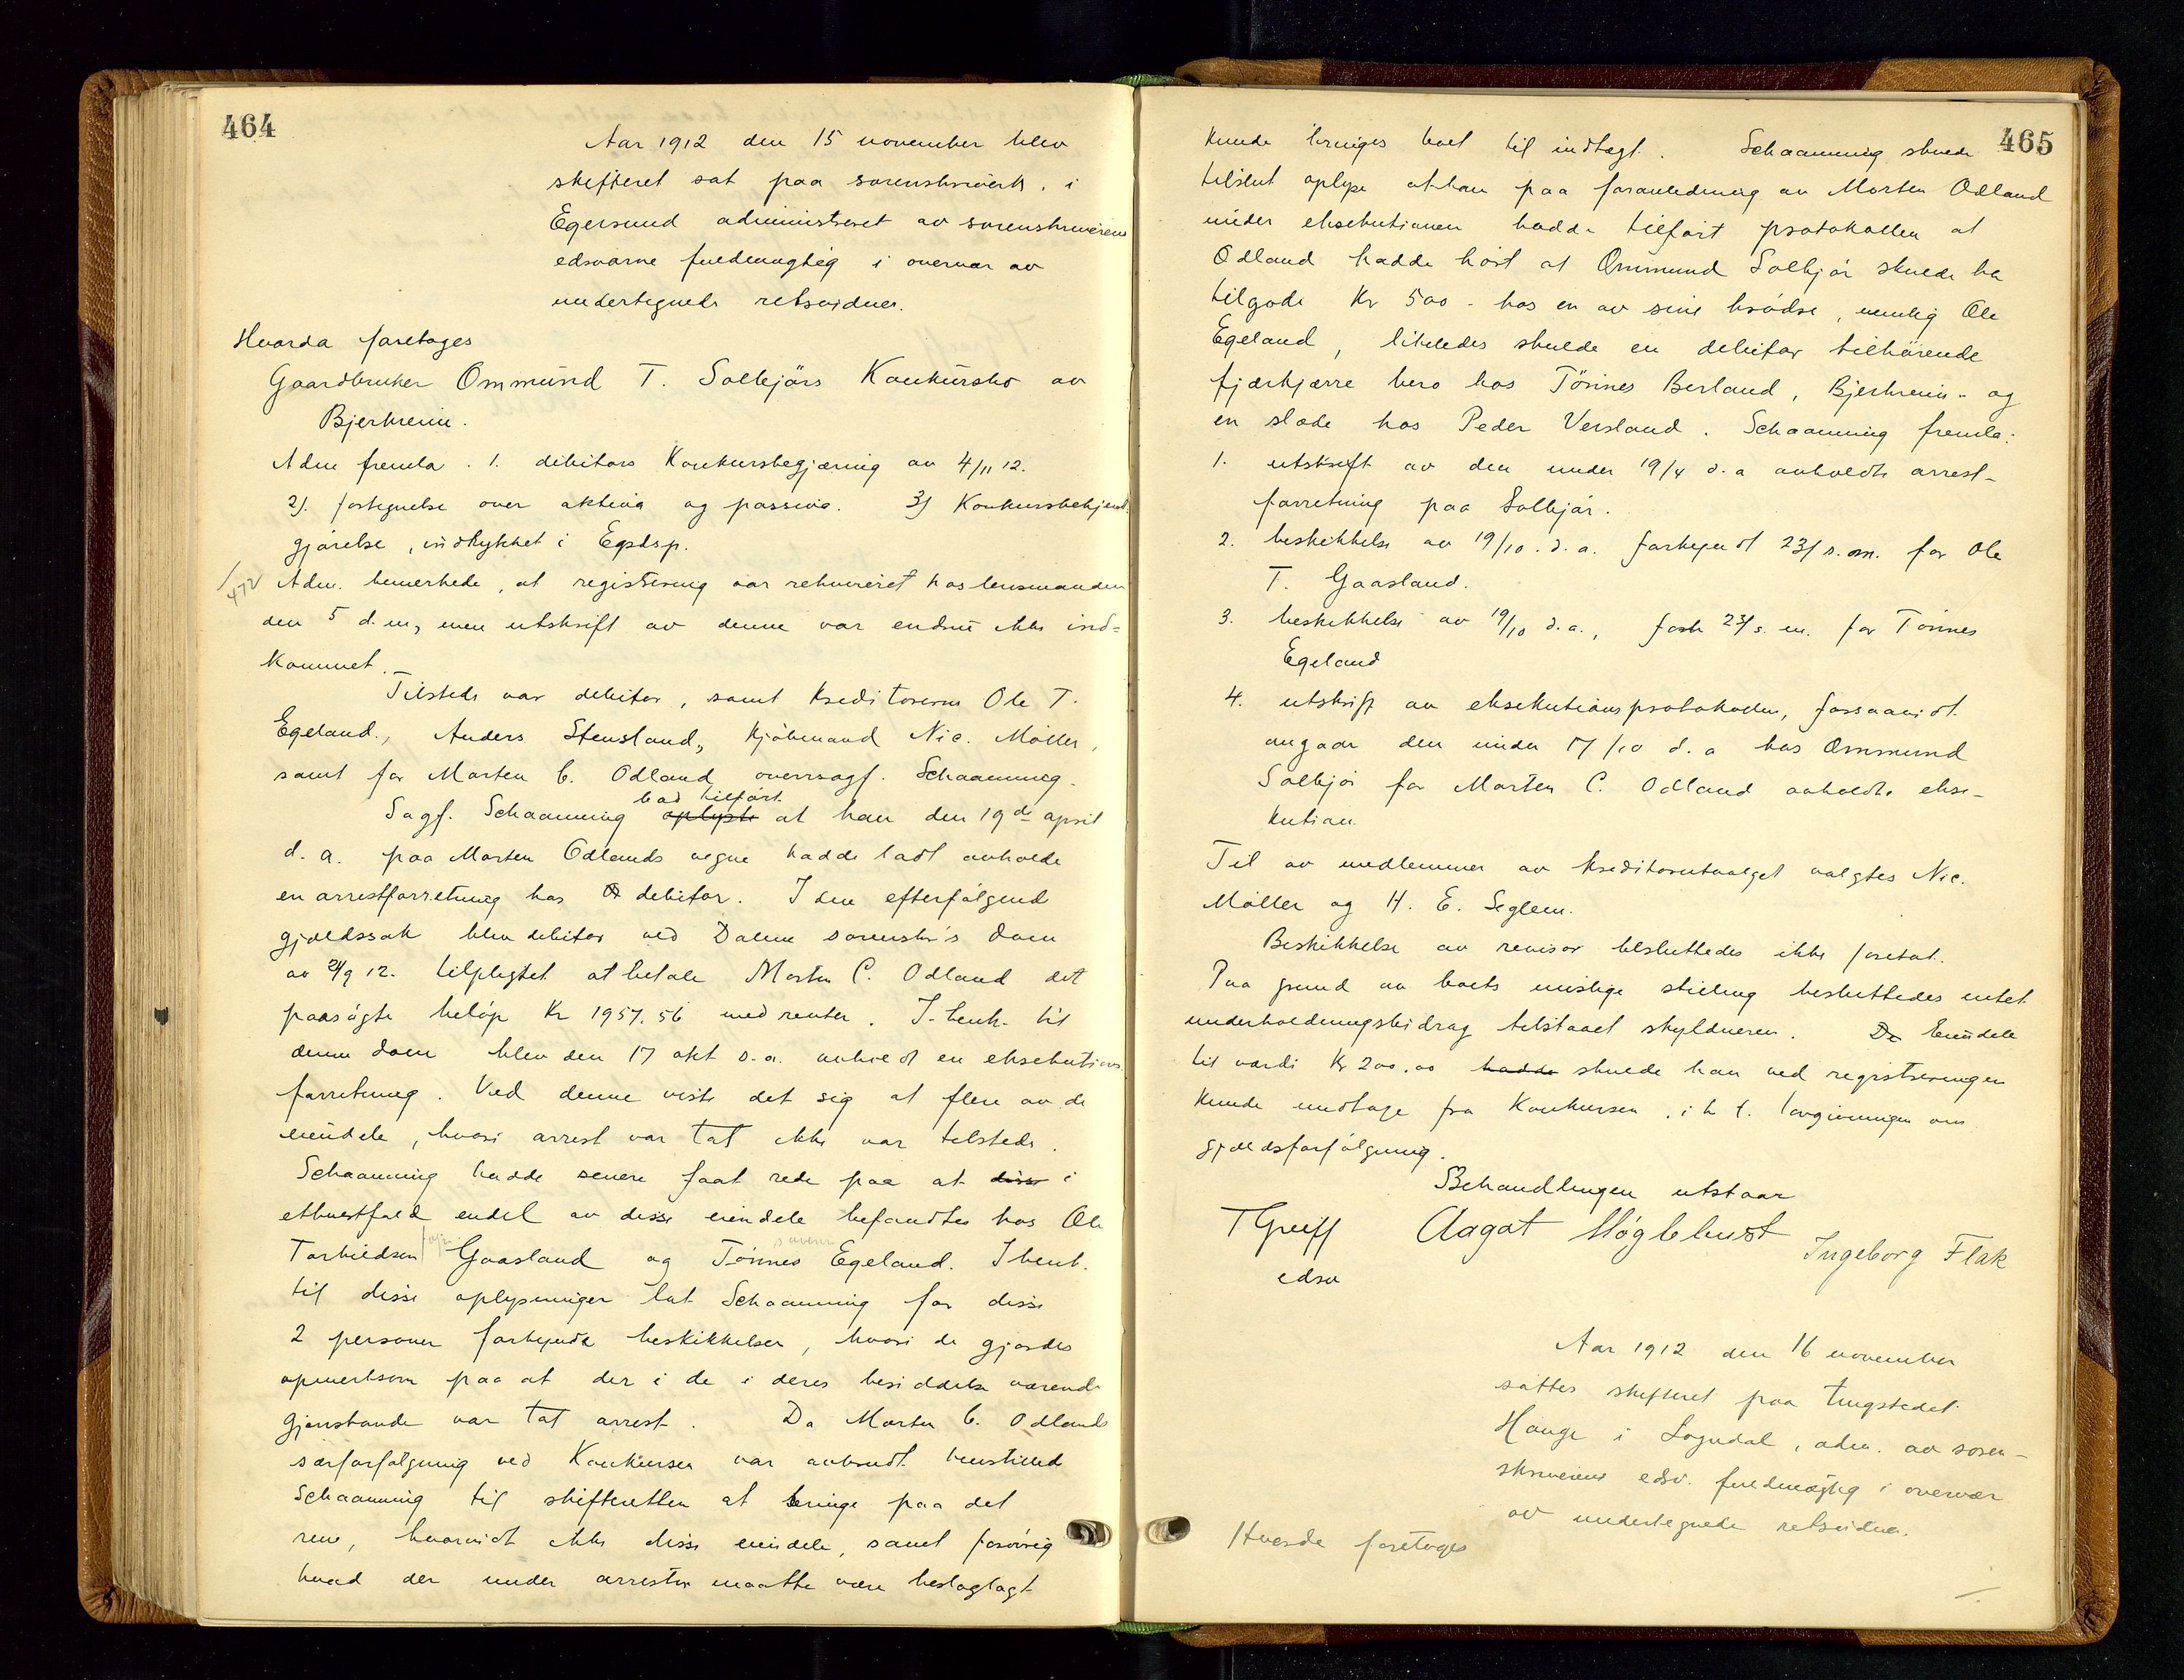 464
Aar 1912 den 15 november blev
skifteret sat paa sorenskriverk. i
Egersund administreret av sorenskriverens
edsvorne fuldmægtig i overvær av
undertegnede retsvidner.
Hvorda foretoges
Gaardbruker Ommund T. Solbjørs Konkursbo av
Bjerkreim.
Adm fremla. 1. debitors Konkursbegjæring av 4/11 12.
2). fortegnelse over aktiva og passiva. 3) Konkursbekjend
gjørelse, indrykket i Egdsp.
472
Adm. bemerkede, at registrering var rekvireret hos lensmanden
den 5 d.m, men utskrift av denne var endnu ikke ind-
kommet.
Tilstede var debitor, samt kreditorerne Ole T.
Egeland, Anders Stensland, kjøbmand Nic. Møller,
samt for Morten C. Odland overrsagf. Schaanning.
bad tilført
Sagf. Schaanning oplyste at han den 19de april
d. a. paa Morten Odlands vegne hadde ladt avholde
en arrestforretning hos debitor. I den efterfølgend
gjældssak blev debitor ved Dalene sorenskr's dom
av 24/9 12. tilpligtet at betale Morten C. Odland det
paasøgte beløp Kr 1957.56 med renter. I henh. til
denne dom blev den 17 okt d.a. avholdt en eksekutions
forretning. Ved denne viste det sig at flere av de
eiendele, hvori arrest var tat ikke var tilstede.
Schaanning hadde senere faat rede paa at disse i
ethvertfald endel av disse eiendele befandtes hos Ole
Torkildsen Gaasland og Tønnes Egeland. I henh.
til disse oplysninger lot Schaanning for disse
2 personer forkynde beskikkelser, hvori de gjordes
opmerksom paa at der i de i deres besiddelse værende
gjenstande var tat arrest. Da Morten C. Odlands
særforfølgning ved Konkursen var avbrudt henstilled
Schaanning til skifteretten at bringe paa det
rene, hvorvidt ikke disse eiendele, samt forøvrig
hvad der under arresten maatte være beslaglagt
465
kunde bringes boet til indtægt. Schaanning skulde
tilslut oplyse at han paa foranledning av Morten Odland
under eksekutionen hadde tilført protokollen at
Odland hadde hørt at Ommund Solbjør skulde ha
tilgode Kr 500 - hos en av sine brødre, nemlig Ole
Egeland, likeledes skulde en debitor tilhørende
fjærkjærre bero hos Tønnes Berland, Bjerkreim - og
en slæde hos Peder Versland. Schaanning fremla:
1. utskrift av den under 19/4 d. a avholdte arrest-
forretning paa Solbjør.
2. beskikkelse av 19/10. d. a. forkyndt 23/ s. m. for Ole
T. Gaasland.
3. beskikkelse av 19/10 d.a., fork 23/ s. m. for Tønnes
Egeland
4. utskrift av eksekutionsprotokollen, forsaavidt
angaar den under 17/10 d. a hos Ommund
Solbjør for Morten C. Odland avholdte ekse-
kution.
Til av medlemmer av kreditorutvalget valgtes Nic.
Møller og H. E. Seglem.
Beskikkelse av revisor besluttedes ikke foretat.
Paa grund av boets mislige stilling besluttedes intet
underholdningsbidrag tilstaaet skyldneren. De Eiendele
til værdi Kr 200.00 hadde skulde han ved registreringen
kunde undtage fra Konkursen, i h. t. lovgivningen om
gjældsforfølgning.
Behandlingen utstaar
T Greiff
edsv
Aagot Høgblundt
Ingeborg Flak
Aar 1912 den 16 november
sattes skifteret paa tingstedet
Hauge i Sogndal, adm. av soren-
skriverens edsv. fuldmægtig i overvær
av undertegnede retsvidner.
Hvorda foretoges